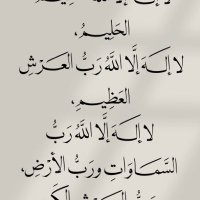 لا إلـهَ إلَّا اللَّهُ
الحَلِيمُ،
لا إلـهَ إلَّا اللَّهُ رَبُّ العَرْشِ
العَظِيمِ،
لا إلـهَ إلَّا اللَّهُ رَبُّ
السَّمَاوَاتِ ورَبُّ الأرْضِ،